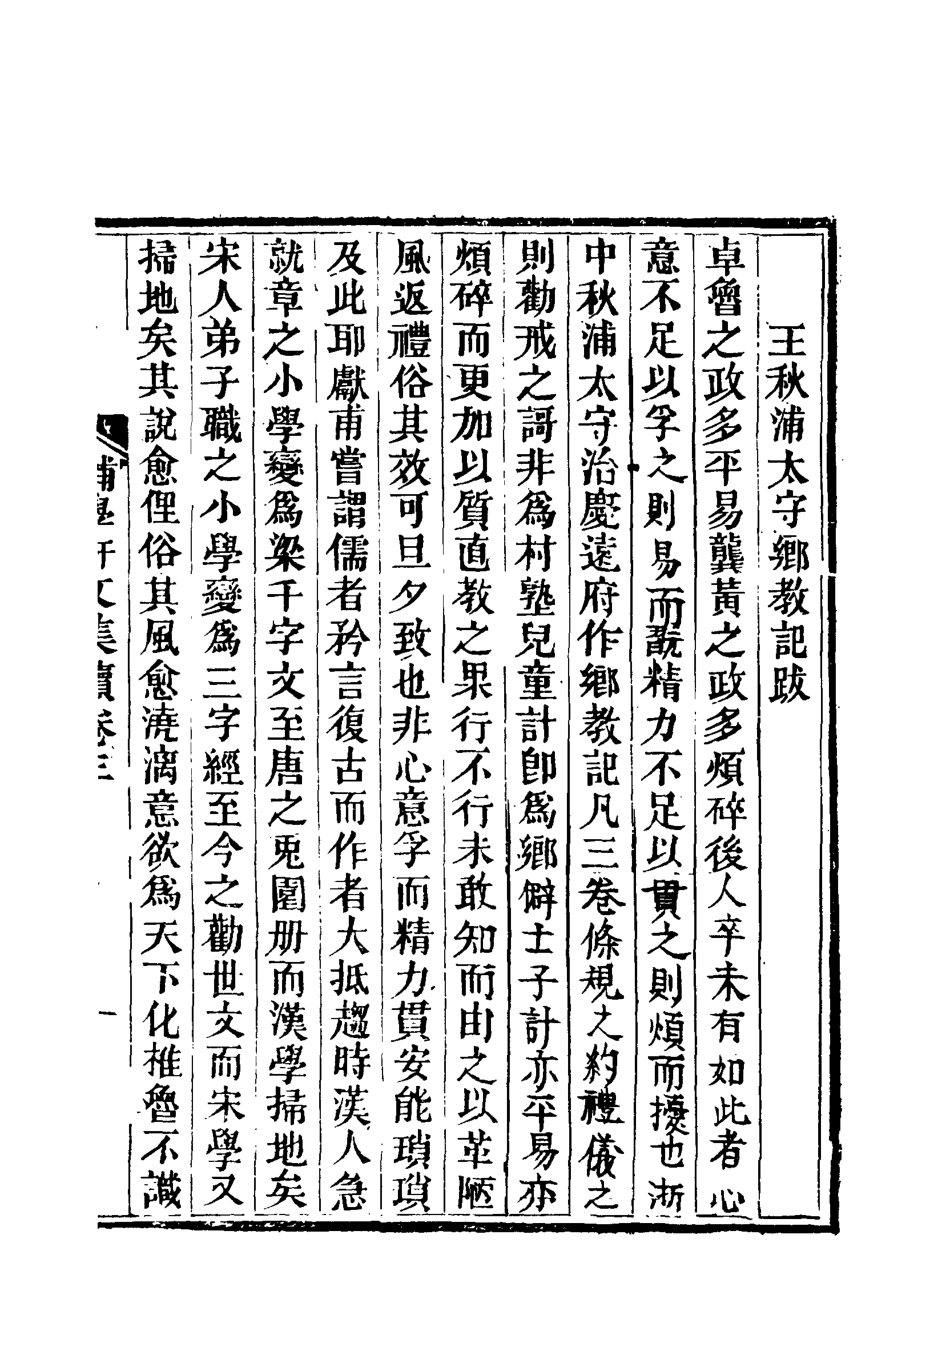 王秋浦太守鄉教記跋
卓魯之政多平易龔黃之政多煩碎後人卒未有如此者心
意不足以孚之則易而翫精力不足以貫之則煩而擾也浙
中秋浦太守治慶遠府作鄉教記凡三卷條規之約禮儀之
則勸戒之謌非爲村塾兒童計卽爲鄉僻士子計亦平易亦
煩碎而更加以質直教之果行不行未敢知而由之以革陋
風返禮俗其效可旦夕致也非心意孚而精力貫安能瑣瑣
及此耶獻甫嘗謂儒者矜言復古而作者大抵趨時漢人急
就章之小學變爲梁千字文至唐之兎園册而漢學掃地矣
宋人弟子職之小學變爲三字經至今之勸世文而宋學又
掃地矣其說愈俚俗其風愈澆漓意欲爲天下化椎魯不識
補學軒文集續卷三
一